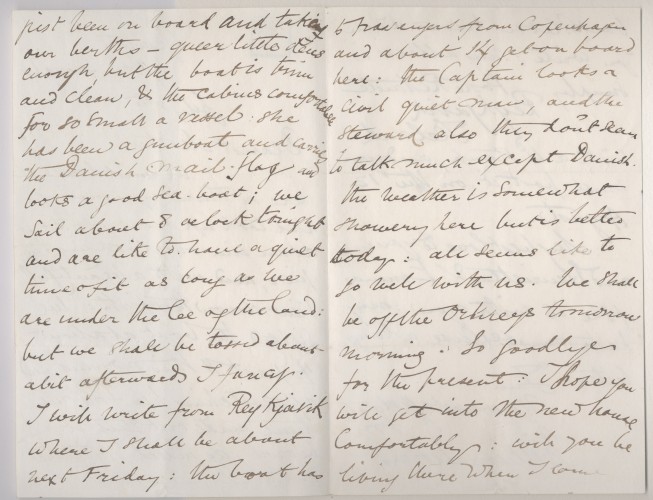 just been on board and taking
our berths – queer little dens
enough, but the boat is trim
and clean, & the cabins comfortable
for so small a vessel. she
has been a gunboat and carries
the Danish mail-flag and
looks a good sea-boat; we
sail about 8 oclock tonight
and are like to have a quiet
time of it as long as we
are under the lee of the land:
but we shall be tossed about
abit afterwards I fancy.
I will write from Reykjavik
where I shall be about
next Friday: the boat has
passengers from Copenhagen
and about 14 get on board
here: the Captain looks a
civil quiet man, and the
steward also they don't seem
to talk much except Danish.
the weather is somewhat
showery here but is better
today: all seems like to
go well with us. We shall
be off the Orkneys tomorrow
morning. So goodbye
for the present: I hope you
will get into the new house
comfortably: will you be
living there when I come